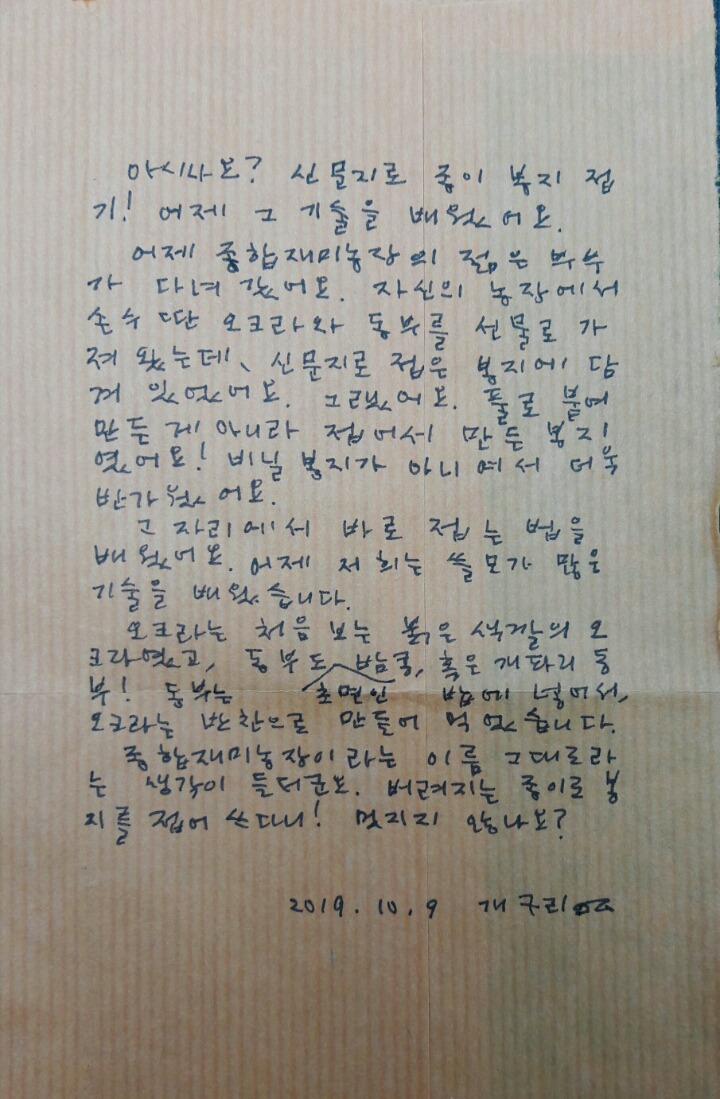 아시나요? 신문지로 종이 봉지 접
기! 어제 그 기술을 배웠어요.
어제 종합재미농장의 젊은 부부
가 다녀 갔어요. 자신의 농장에서
손수 딴 오크라와 동부를 선물로 가
져 왔는데, 신문지로 접은 봉지에 담
겨 있었어요. 그랬어요. 풀로 붙여
만든 게 아니라 접어서 만든 봉지
였어요! 비닐 봉지가 아니여서 더욱
반가웠어요.
그 자리에서 바로 접는 법을
배웠어요. 어제 저희는 쓸모가 많은
기술을 배웠습니다.
오크라는 처음 보는 붉은 색깔의 오
크라였고, 동부도 밤콩, 혹은 개파리 동
부! 동부는 초면인 밥에 넣어서,
오크라는 반찬으로 만들어 먹었습니다.
종합재미농장이라는 이름 그대로라
는 생각이 들더군요. 버려지는 종이로 봉
지를 접어 쓰다니! 멋지지 않나요?
2019. 10. 9 개구리